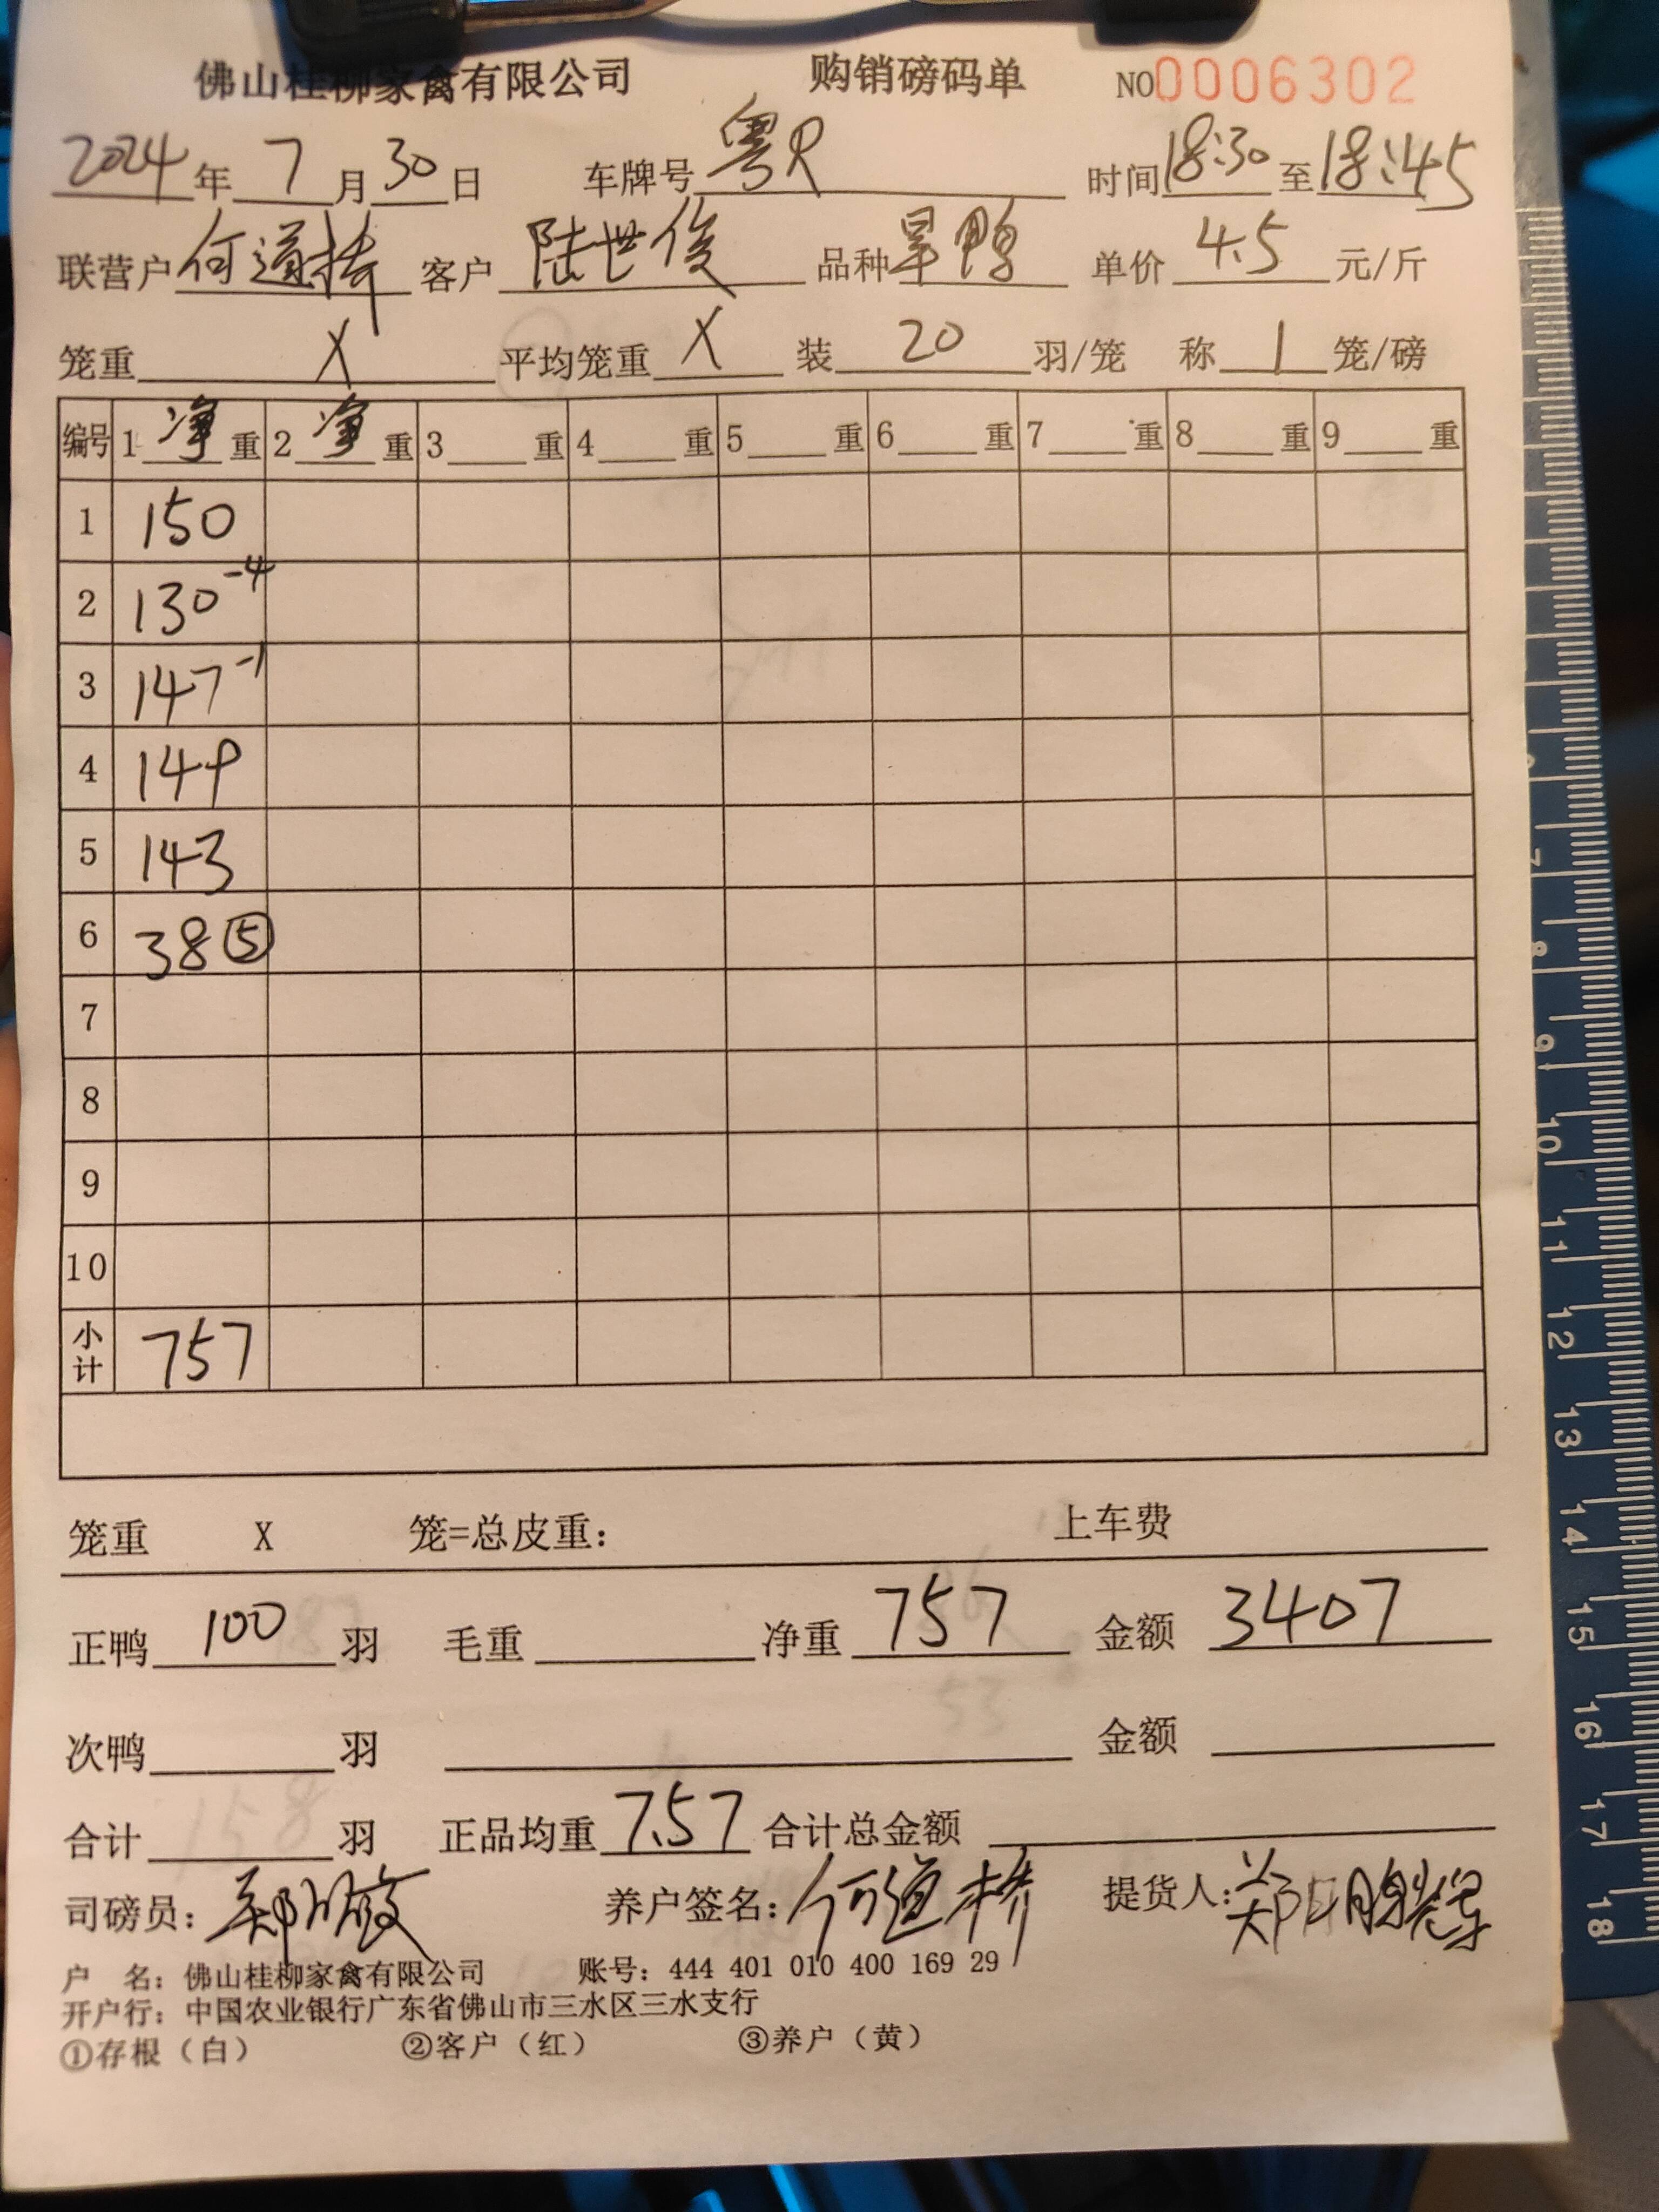 佛山桂柳家禽有限公司 购销磅码单 NO0006302
2024年7月30日 车牌号粤R 时间18:30至18:45
联营户何道桥 客户陆世俊 品种旱鸭 单价4.5元/斤
笼重X 平均笼重X 装20羽/笼 称1笼/磅
编号 1净重 2净重 3重 4重 5重 6重 7重 8重 9重
1 150
2 130-4
3 147-1
4 149
5 143
6 38⑤
7
8
9
10
小计 757
笼重 X 笼=总皮重: 上车费
正鸭100羽 毛重 净重757 金额3407
次鸭 羽 金额
合计 羽 正品均重7.57 合计总金额
司磅员: 郑 养户签名: 何道桥 提货人: 郑
户 名: 佛山桂柳家禽有限公司 账号: 444 401 010 400 169 29
开户行: 中国农业银行广东省佛山市三水区三水支行
①存根(白) ②客户(红) ③养户(黄)